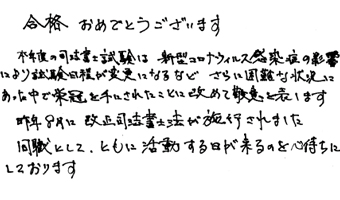 合格 おめでとうございます
本年度の司法書士試験は 新型コロナウィルス感染症の影響
により試験日程が変更になるなど さらに困難な状況に
あった中で栄冠を手にされたことに改めて敬意を表します
昨年8月に 改正司法書士法が施行されました
同職として、ともに活動する日が来るのを心待ちに
しております